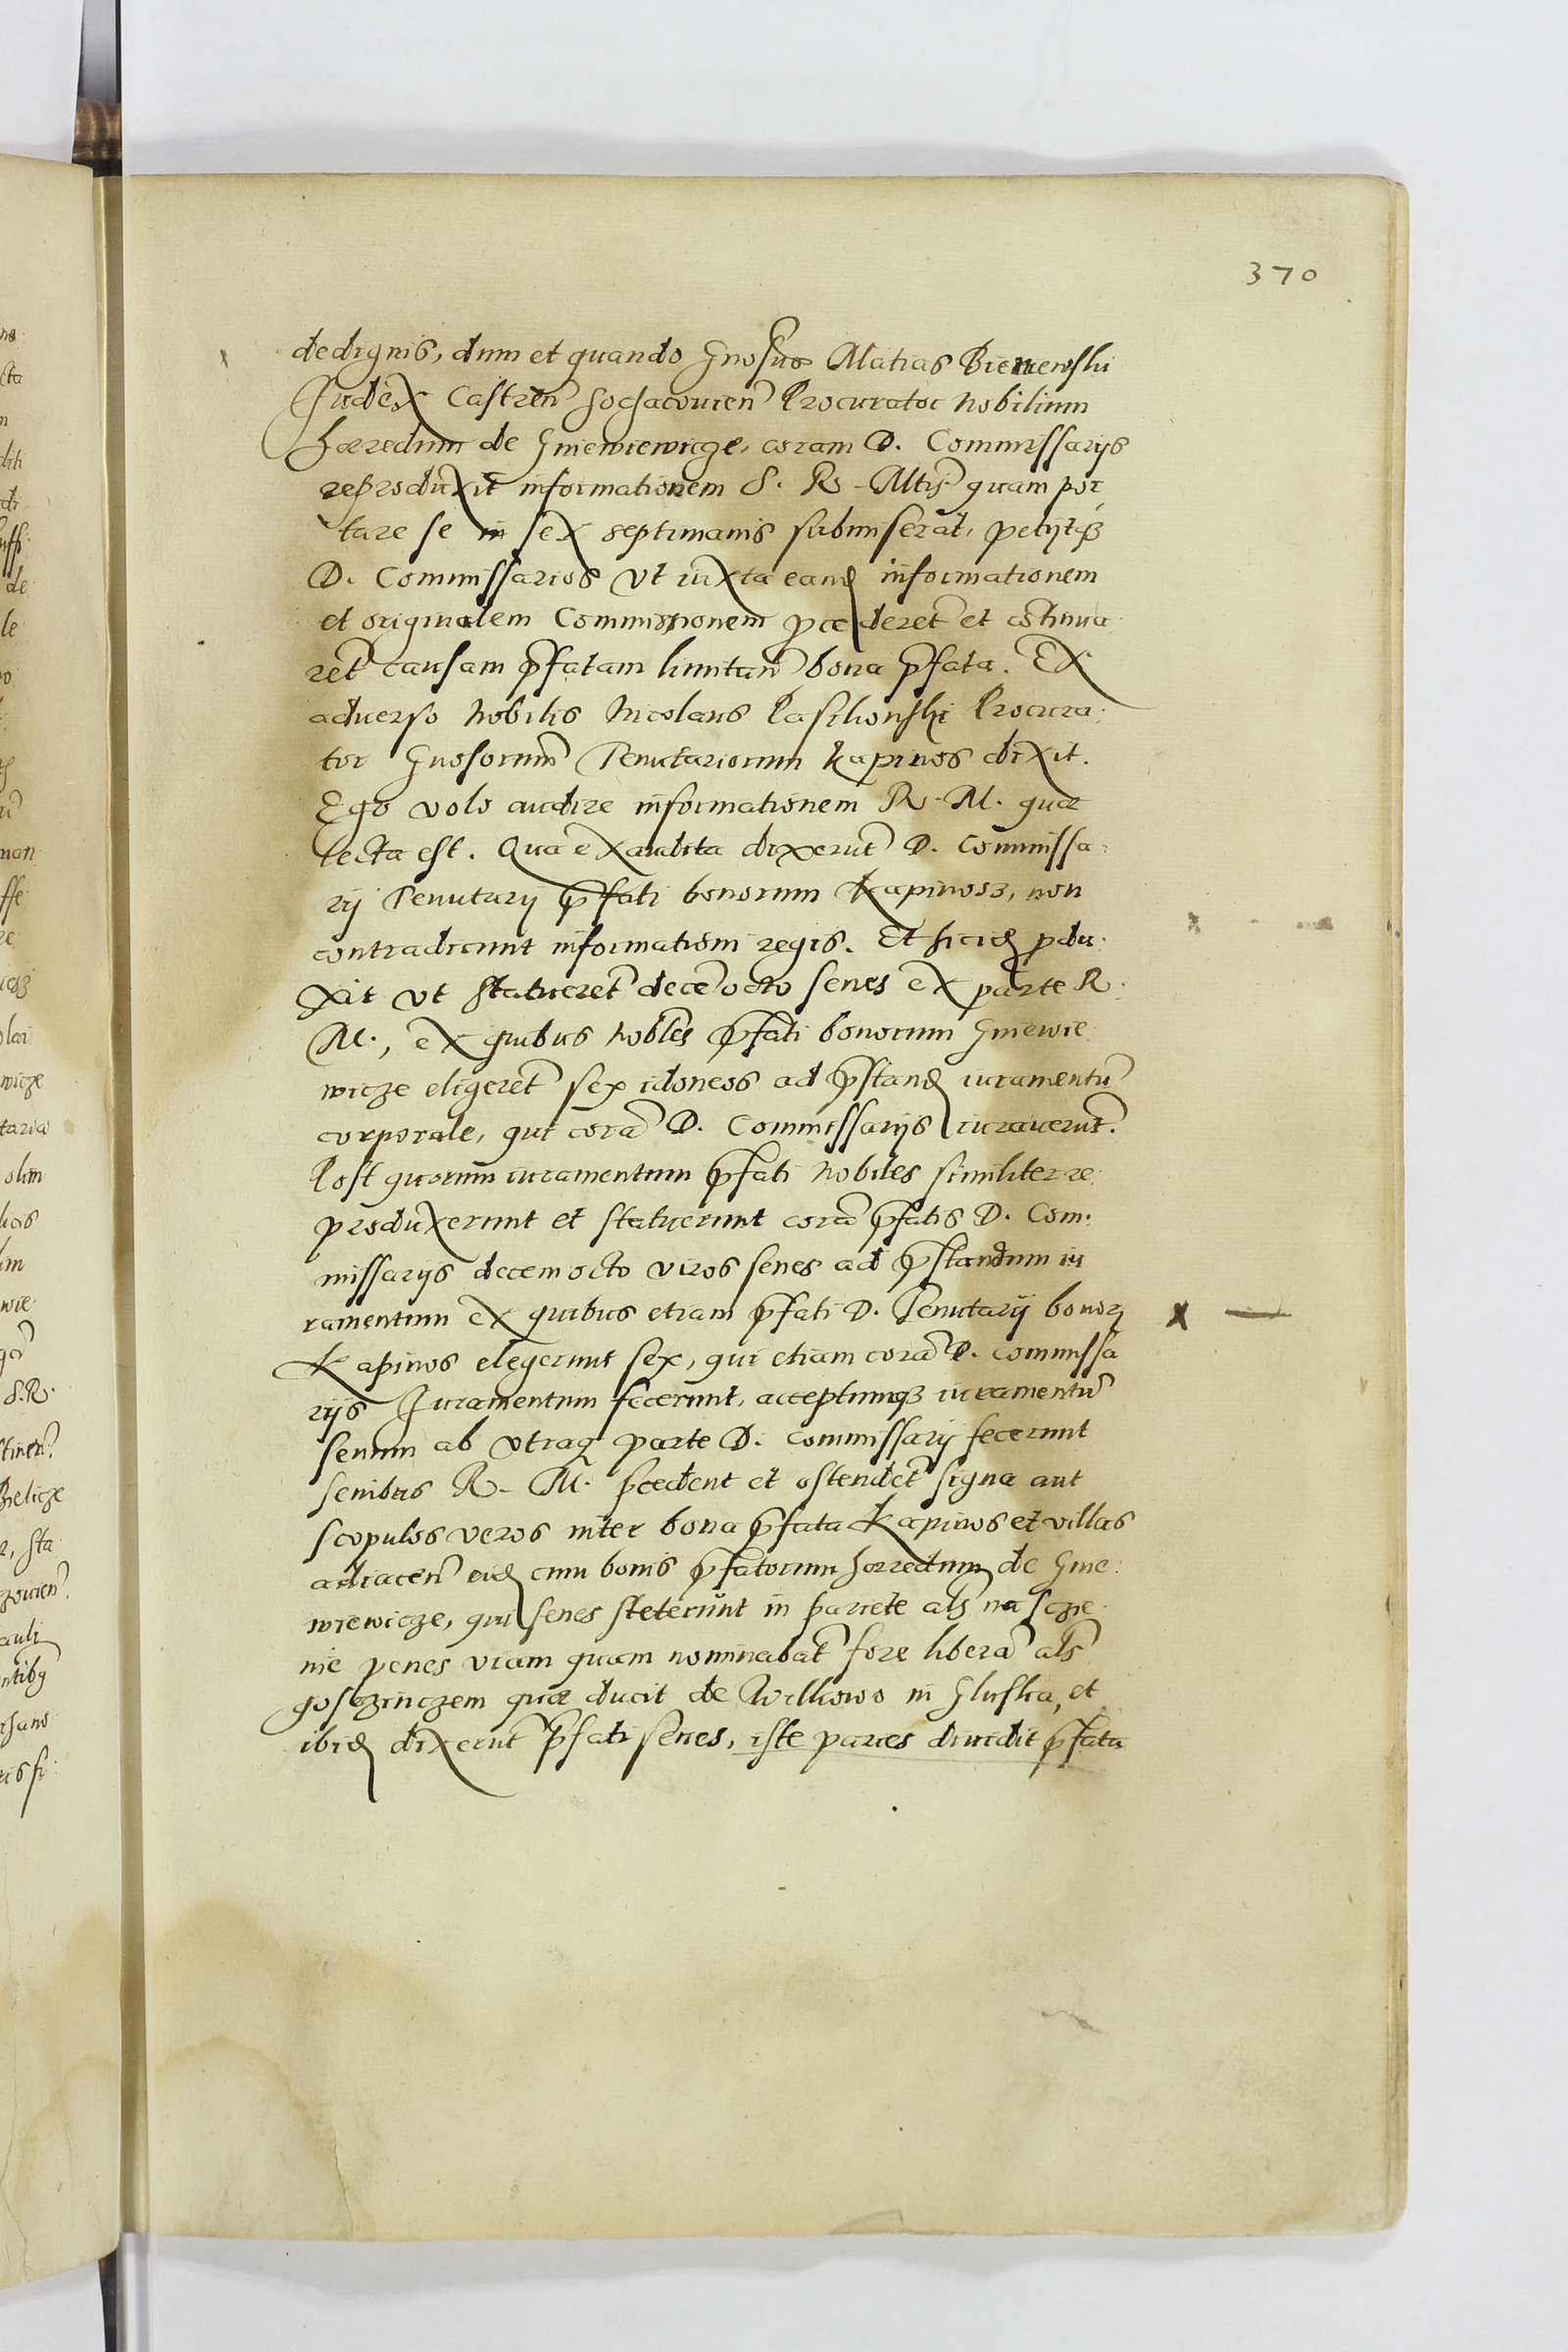 370
dedignis, dum et quando Gnosus Matias Bieniewski
Judex Castren Sochaczouien Procurator Nobilium
hæredum de Gniewiewicze, coram D. Commissarijs
reproduxit informationem S. R. Mtis quam por
tare se in sex septimanis submiserat, petijtq3
D. Commissarios vt iuxta eand informationem
et originalem Commissionem pcederet et cotinua
ret causam pfatam limitan bona pfata. Ex
aduerso Nobilis Nicolaus Pasikonski Procura:
tor Gnosorum Tenutariorum Kapinos dixit.
Ego volo audire informationem R. M. quæ
lecta est. Qua exaudita dixerut D. Commissa:
rij Tenutarij pfati bonorum Kapinos, non
contradicunt informationi regis. Et ibid pdu:
xit vt statueret dece octo senes ex parte R.
M., ex quibus nobles pfati bonorum Gniewie
wicze eligeret sex idoneos ad pstand iuramentu
corporale, qui cora D. Commissarijs iurauerut.
Post quorum iuramentum pfati Nobiles similiter re
produxerunt et statuerunt cora pfatis D. Com:
missarijs decem octo viros senes ad pstandum iu
ramentum ex quibus etiam pfati D. Tenutarij bonor
Kapinos elegerunt sex, qui etiam cora D. Commissa
rijs Juramentum fecerunt, acceptumq3 iuramentu
senum ab vtraq parte D. Commissarij fecerunt
senibus R. M. pcedent et ostendet signa aut
scopulos veros inter bona pfata Kapinos et villas
adiacen eid cum bonis pfatorum hæredum de Gnie:
wiewicze, qui senes steterunt in pariete als na scze
nie penes viam quam nominabat fore libera als
gosczinczem quæ ducit de Wilkowo in Gluska, et
ibid dixerut pfati senes, iste paries diuidit pfata